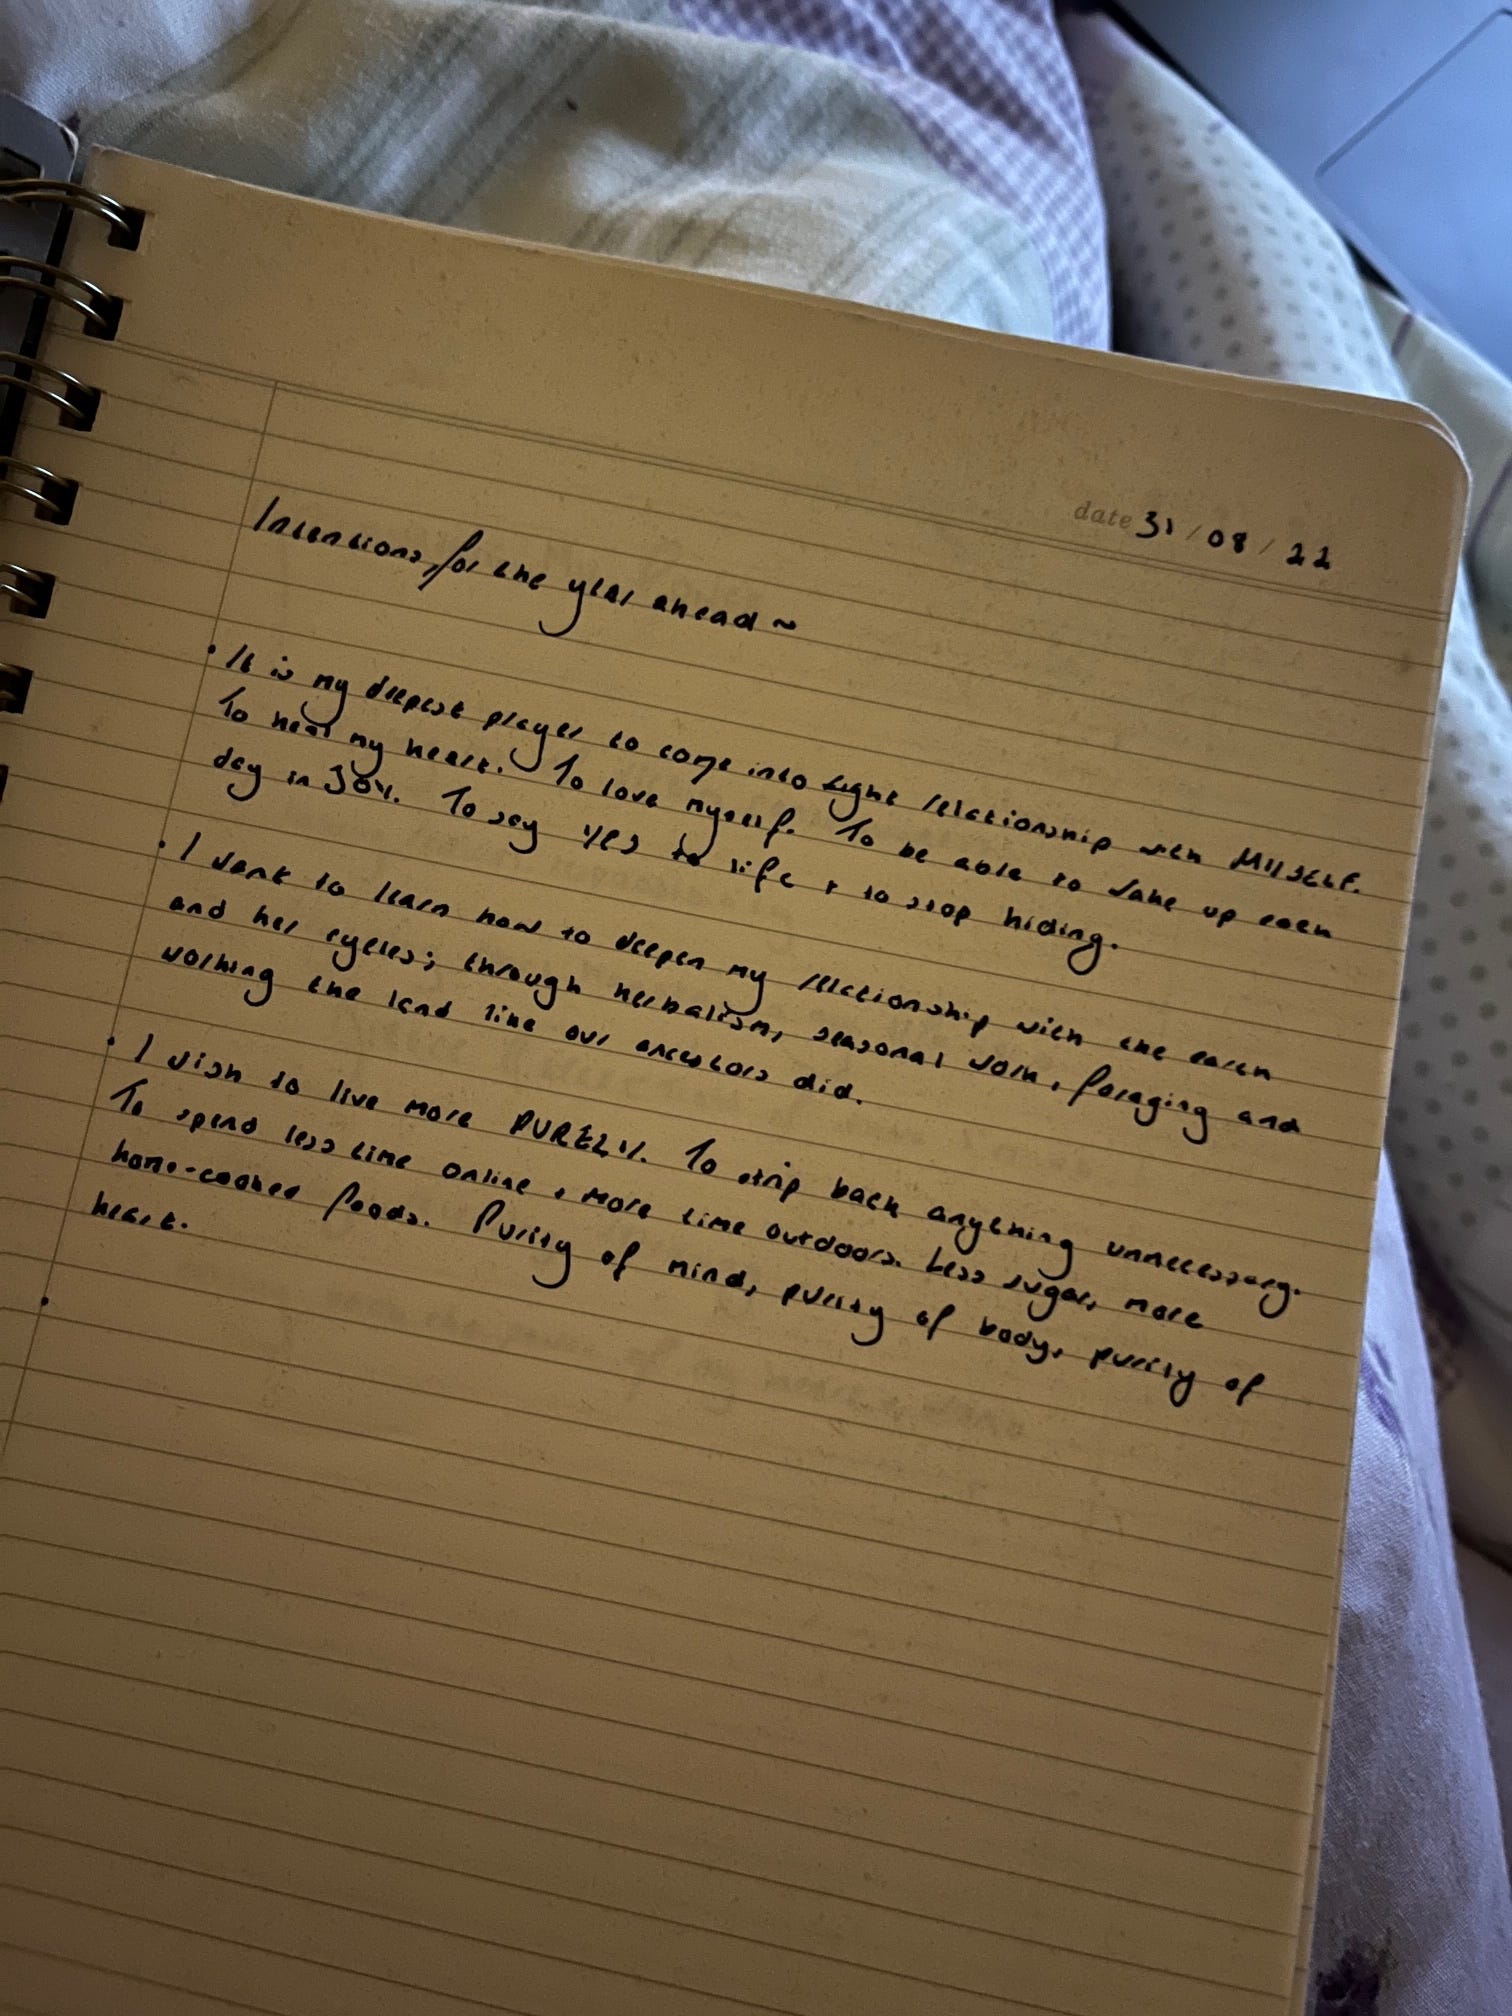 date 31 / 08 / 22
Intentions, for the year ahead ~
• It is my deepest prayer to come into right relationship with MYSELF.
To heal my heart. To love myself. To be able to wake up each
day in JOY. To say YES to life + to stop hiding.
• I want to learn how to deepen my relationship with the earth
and her cycles; through herbalism, seasonal work, foraging and
working the land like our ancestors did.
• I wish to live more PURELY. To strip back anything unnecessary.
To spend less time online + more time outdoors. Less sugar, more
home-cooked foods. Purity of mind, purity of body, purity of
heart.
•